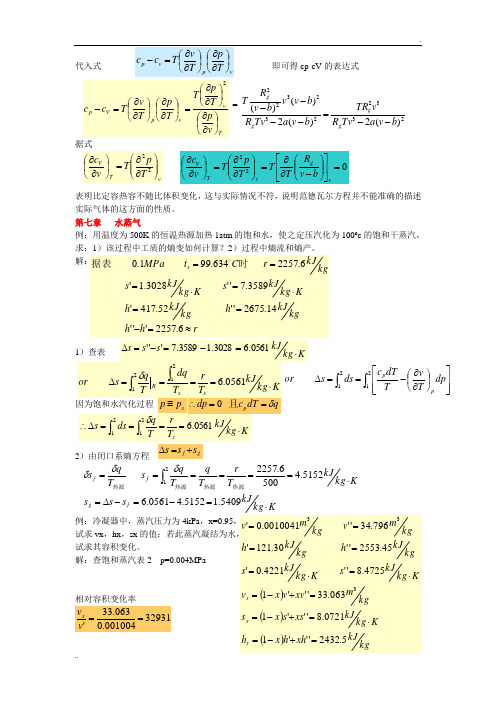 代入式 c_p − c_v = T(∂v/∂T)_p (∂p/∂T)_v 即可得 cp-cV 的表达式
c_p − c_V = T(∂v/∂T)_p (∂p/∂T)_v = T(∂p/∂T)_v^2 / (∂p/∂v)_T = T R_g^2/(v−b)^2 v^3(v−b)^2 / (R_g T v^3 − 2a(v−b)^2) = T R_g^2 v^3 / (R_g T v^3 − 2a(v−b)^2)
据式
(∂c_V/∂v)_T = T(∂²p/∂T²)_v (∂c_V/∂v)_T = T(∂²p/∂T²)_v = T[∂/∂T (R_g/(v−b))]_v = 0
表明比定容热容不随比体积变化，这与实际情况不符，说明范德瓦尔方程并不能准确的描述
实际气体的这方面的性质。
第七章 水蒸气
例：用温度为 500K 的恒温热源加热 1atm 的饱和水，使之定压汽化为 100ºc 的饱和干蒸汽，
求：1）该过程中工质的熵变如何计算？2）过程中熵流和熵产。
解：据表 0.1MPa t_s = 99.634°C时 r = 2257.6 kJ/kg
s' = 1.3028 kJ/kg·K s'' = 7.3589 kJ/kg·K
h' = 417.52 kJ/kg h'' = 2675.14 kJ/kg
h''−h' = 2257.6 ≈ r
1）查表 Δs = s''−s' = 7.3589−1.3028 = 6.0561 kJ/kg·K
or Δs = ∫₁² δq/T|_R = ∫₁² dq/T_s = r/T_s = 6.0561 kJ/kg·K or Δs = ∫₁² ds = ∫₁² [c_p dT/T − (∂v/∂T)_p dp]
因为饱和水汽化过程 p ≡ p_s ∴dp = 0 且c_p dT = δq
∴Δs = ∫₁² ds = ∫₁² δq/T = r/T_s = 6.0561 kJ/kg·K
2）由闭口系熵方程 Δs = s_f + s_g
δs_f = δq/T_热源 s_f = ∫₁² δq/T_热源 = q/T_热源 = r/T_热源 = 2257.6/500 = 4.5152 kJ/kg·K
s_g = Δs − s_f = 6.0561−4.5152 = 1.5409 kJ/kg·K
例：冷凝器中，蒸汽压力为 4kPa，x=0.95，
试求 vx，hx，sx 的值；若此蒸汽凝结为水，
试求其容积变化。
解：查饱和蒸汽表 2 p=0.004MPa
v' = 0.0010041 m³/kg v'' = 34.796 m³/kg
h' = 121.30 kJ/kg h'' = 2553.45 kJ/kg
s' = 0.4221 kJ/kg·K s'' = 8.4725 kJ/kg·K
v_x = (1−x)v'+xv'' = 33.063 m³/kg
s_x = (1−x)s'+xs'' = 8.0721 kJ/kg·K
h_x = (1−x)h'+xh'' = 2432.5 kJ/kg
相对容积变化率
v_x/v' = 33.063/0.001004 = 32931